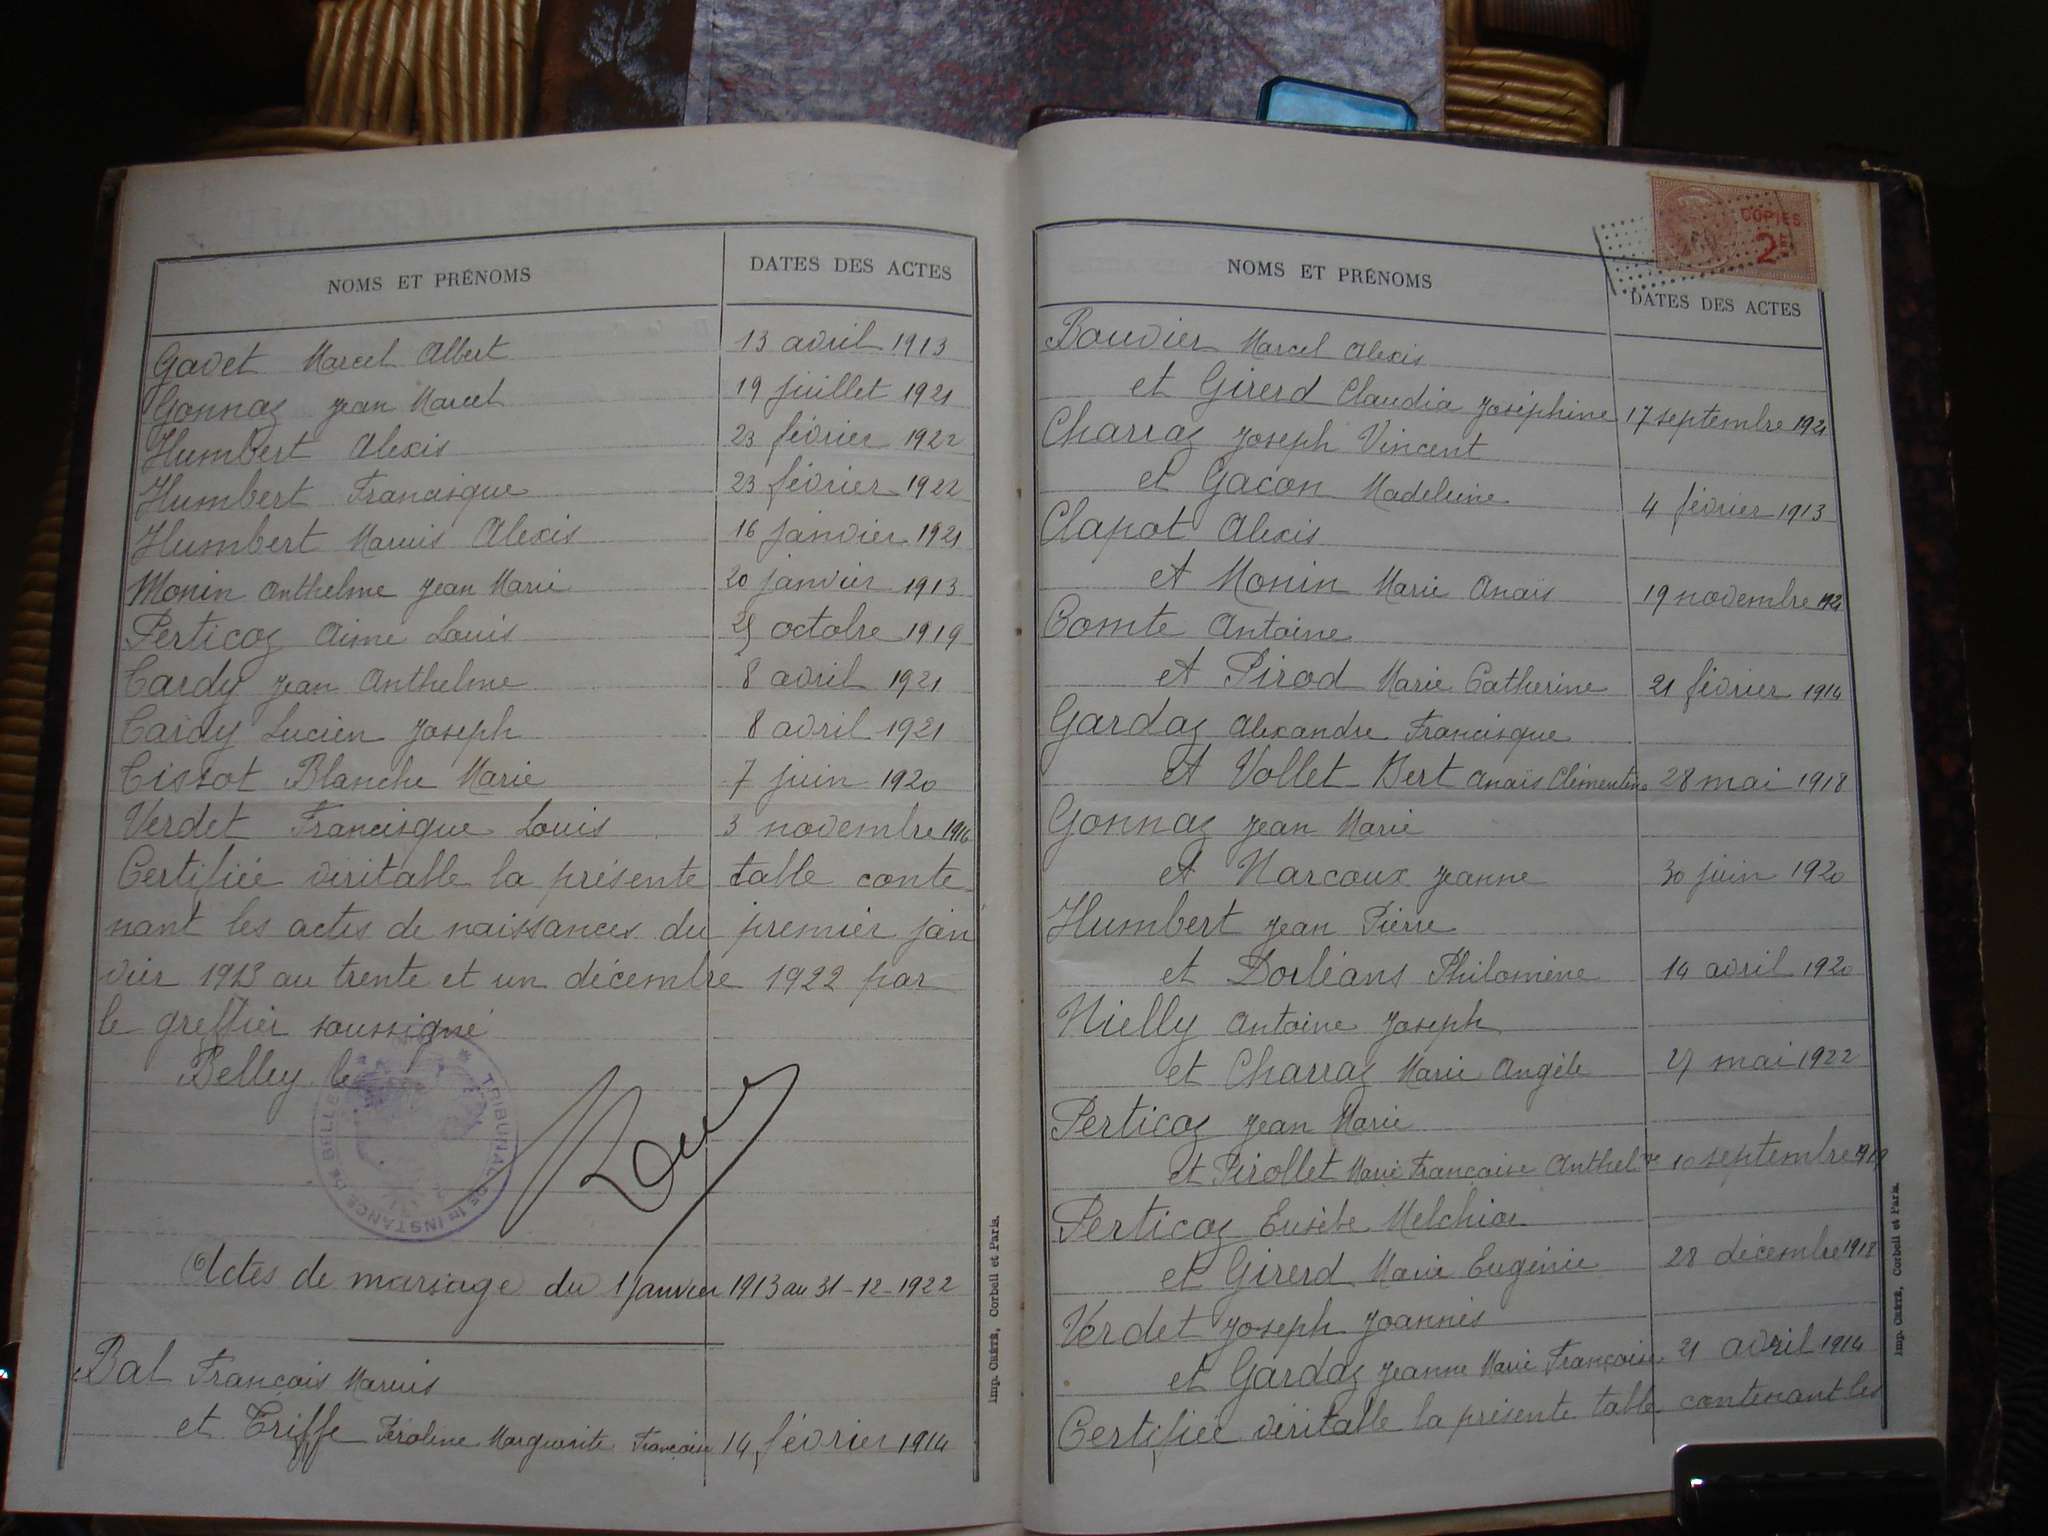 NOMS ET PRÉNOMS DATES DES ACTES
Gavet Marcel Albert 13 avril 1913
Gonnaz Jean Marcel 19 juillet 1921
Humbert Alexis 23 février 1922
Humbert Francisque 23 février 1922
Humbert Marius Alexis 16 janvier 1921
Monin Anthelme Jean Marie 20 janvier 1913
Perticoz Aimé Louis octobre 1919
Tardy Jean Anthelme 8 avril 1921
Tardy Lucien Joseph 8 avril 1921
Tissot Blanche Marie 7 juin 1920
Verdet Francisque Louis 3 novembre
Certifiée véritable la présente table conte
nant les actes de naissances du premier jan
vier 1913 au trente et un décembre 1922 par
le greffier soussigné
Belley le
TRIBUNAL DE 1re INSTANCE DE BELLEY
Actes de mariage du 1 Janvier 1913 au 31-12-1922
Bal François Marius
et Triffe Péroline Marguerite Françoise 14 février 1914
Imp. CRÉTÉ, Corbeil et Paris.
COPIES
2
NOMS ET PRÉNOMS DATES DES ACTES
Bouvier Marcel Alexis
et Girerd Claudia Joséphine 17 septembre 1921
Charraz Joseph Vincent
et Gacon Madeleine 4 février 1913
Clapot Alexis
et Monin Marie Anais 19 novembre
Comte Antoine
et Pirod Marie Catherine 21 février 1914
Gardaz Alexandre Francisque
et Vollet Bert Anaïs Clémentine 28 mai 1918
Gonnaz Jean Marie
et Marcoux Jeanne 30 juin 1920
Humbert Jean Pierre
et Dorléans Philomène 14 avril 1920
Nielly Antoine Joseph
et Charraz Marie Angèle 27 mai 1922
Perticoz Jean Marie
et Pirollet Marie Françoise Anthelme 10 septembre
Perticoz Eusèbe Melchior
et Girerd Marie Eugénie 28 décembre 1918
Verdet Joseph Joannès
et Gardaz Jeanne Marie Françoise 21 avril 1914
Certifiée véritable la présente table contenant les
Imp. CRÉTÉ, Corbeil et Paris.